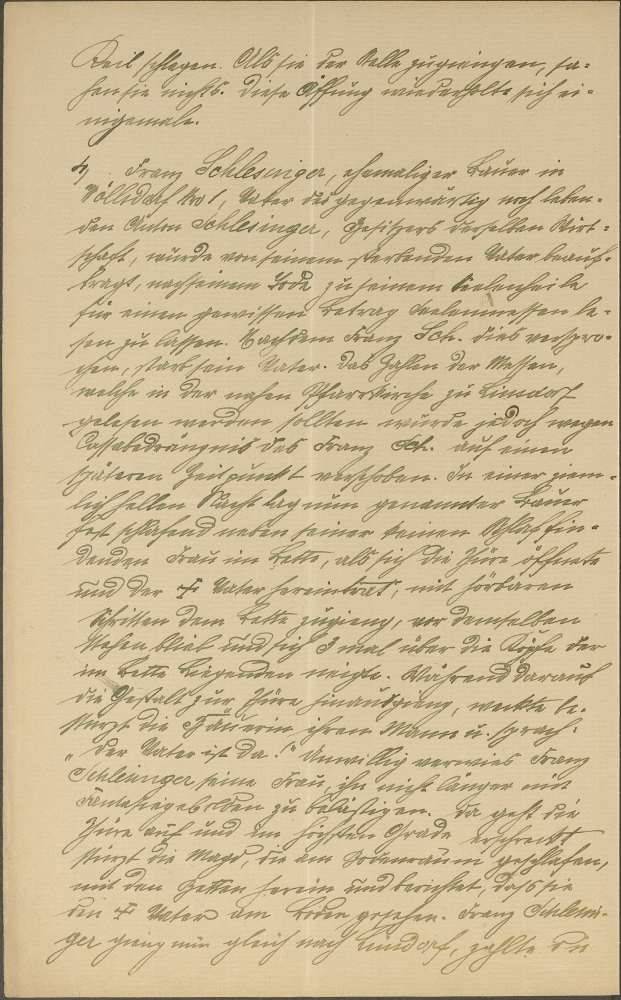 Keil schlagen. Als sie der Stelle zugiengen, sa-
hen sie nichts. Diese Öffnung wiederholte sich ei-
nigemale.
4) Franz Schlesinger, ehemaliger Bauer in
Wöllsdorf Nro 1, Vater des gegenwärtig noch leben-
den Anton Schlesinger, Besitzers derselben Wirt-
schaft, wurde von seinem sterbenden Vater beauf-
tragt, nach seinem Tode zu seinem Seelenheile
für einen gewissen Betrag Seelenmessen le-
sen zu lassen. Nachdem Franz Sch. dies verspro-
chen, starb sein Vater. Das Zahlen der Messen,
welche in der nahen Pfarrkirche zu Lindorf
gelesen werden sollten wurde jedoch wegen
Cassabedrängnis des Franz Sch. auf einen
späteren Zeitpunkt verschoben. In einer ziem-
lich hellen Nacht lag nun genannter Bauer
fest schlafend neben seiner keinen Schlaf fin-
denden Frau im Bette, als sich die Thüre öffnete
und der † Vater hereintrat, mit hörbaren
Schritten dem Bette zugieng, vor demselben
stehen blieb und sich 3 mal über die Köpfe der
im Bette Liegenden neigte. Während darauf
die Gestalt zur Thüre hinausgieng, weckte be-
stürzt die Bäuerin ihren Mann u. sprach:
„Der Vater ist da!" Unwillig verwies Franz
Schlesinger seine Frau, ihn nicht länger mit
Fantasiegebilden zu belästigen. Da geht die
Thüre auf und im höchsten Grade erschreckt
stürzt die Magd, die am Bodenraum geschlafen,
mit den Betten herein und berichtet, dass sie
den † Vater am Boden gesehen. Franz Schlesin-
ger gieng nun gleich nach Lindorf, zahlte die